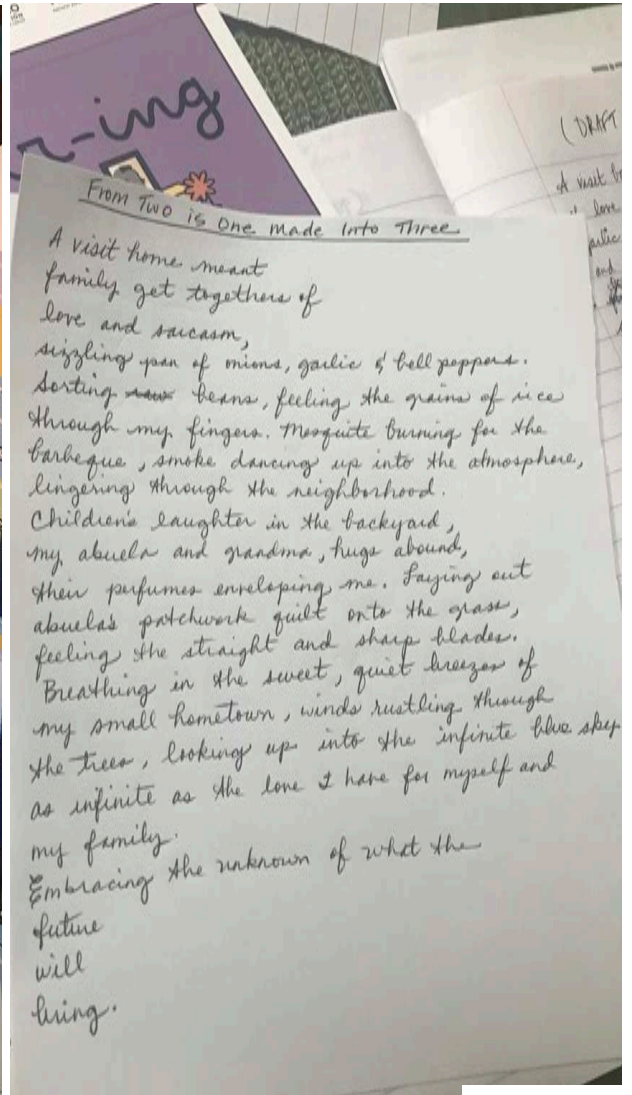 r-ing
(DRAFT
A visit
love
and
From Two is One Made Into Three
A visit home meant
family get togethers of
love and sarcasm,
sizzling pan of onions, garlic & bell peppers.
Sorting beans, feeling the grains of rice
through my fingers. Mesquite burning for the
barbeque, smoke dancing up into the atmosphere,
lingering through the neighborhood.
Children's laughter in the backyard,
my abuela and grandma, hugs abound,
their perfumes enveloping me. Laying out
abuela's patchwork quilt onto the grass,
feeling the straight and sharp blades.
Breathing in the sweet, quiet breezes of
my small hometown, winds rustling through
the trees, looking up into the infinite blue sky
as infinite as the love I have for myself and
my family.
Embracing the unknown of what the
future
will
bring.